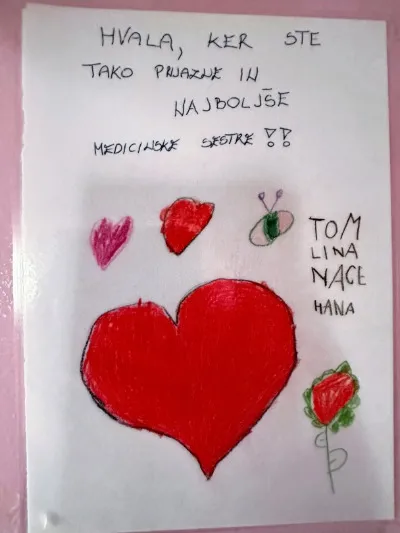 HVALA, KER STE
TAKO PRIJAZNE IN
NAJBOLJŠE
MEDICINSKE SESTRE!!
TOM
LINA
NACE
HANA